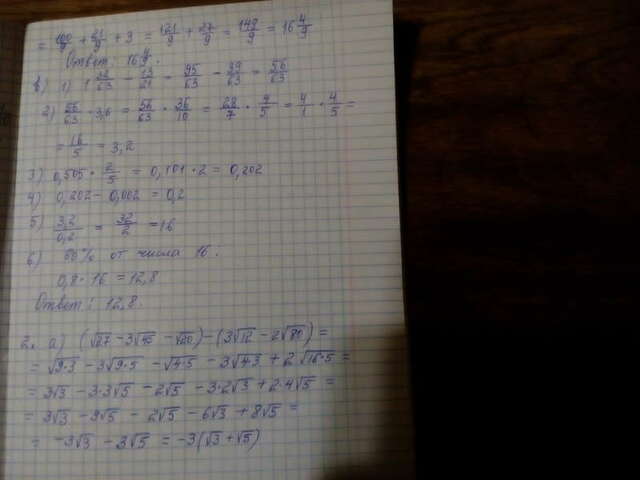 = 100/9 + 21/9 + 3 = 121/9 + 27/9 = 148/9 = 16 4/9
Ответ: 16 4/9.
в) 1) 1 32/63 - 13/21 = 95/63 - 39/63 = 56/63
2) 56/63 · 3,6 = 56/63 · 36/10 = 28/7 · 4/5 = 4/1 · 4/5 =
= 16/5 = 3,2
3) 0,505 · 2/5 = 0,101 · 2 = 0,202
4) 0,202 - 0,002 = 0,2
5) 3,2/0,2 = 32/2 = 16
6) 80% от числа 16.
0,8 · 16 = 12,8
Ответ: 12,8.
2. а) (√27 - 3√45 - √20) - (3√12 - 2√80) =
= √9·3 - 3√9·5 - √4·5 - 3√4·3 + 2√16·5 =
= 3√3 - 3·3√5 - 2√5 - 3·2√3 + 2·4√5 =
= 3√3 - 9√5 - 2√5 - 6√3 + 8√5 =
= -3√3 - 3√5 = -3(√3 + √5)